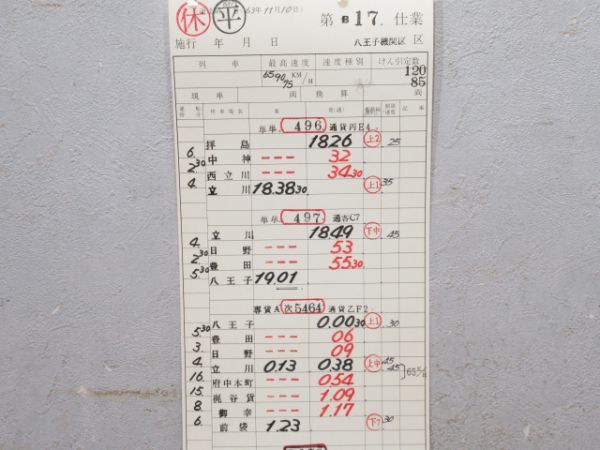 休 平 63年11月10日)
第 B17. 仕業
施行 年 月 日 八王子機関区 区
列車 最高速度 速度種別 けん引定数
65 90 75 KM/H 120
85
現車 両 換算 両
停車場名 着 発(通) 記事
単単. 496 通貨丙E4
拝島 1826 上2 25
6. 中神 --- 32
2³⁰ 西立川 --- 34 30
4. 立川 18.38 30 上1 35
単単. 497 通客C7
立川 1849 下中 45
4. 日野 --- 53
2³⁰ 豊田 --- 55 30
5.³⁰ 八王子 19.01
専貨A 次5464 通貨乙F2
八王子 0.00 30 上1 30
5.³⁰ 豊田 --- 06
3. 日野 --- 09
4. 立川 0.13 0.38 上中 45 45
16. 府中本町 --- 0.54 65
15. 梶ヶ谷貨 --- 1.09
8. 御幸 --- 1.17
6. 前袋 1.23 下7 30